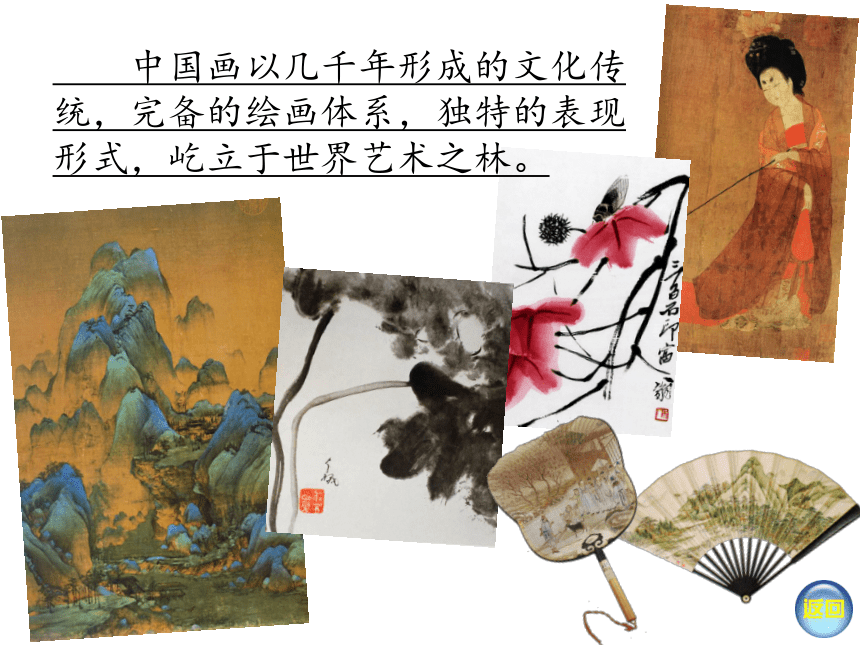 中国画以几千年形成的文化传
统，完备的绘画体系，独特的表现
形式，屹立于世界艺术之林。
返回